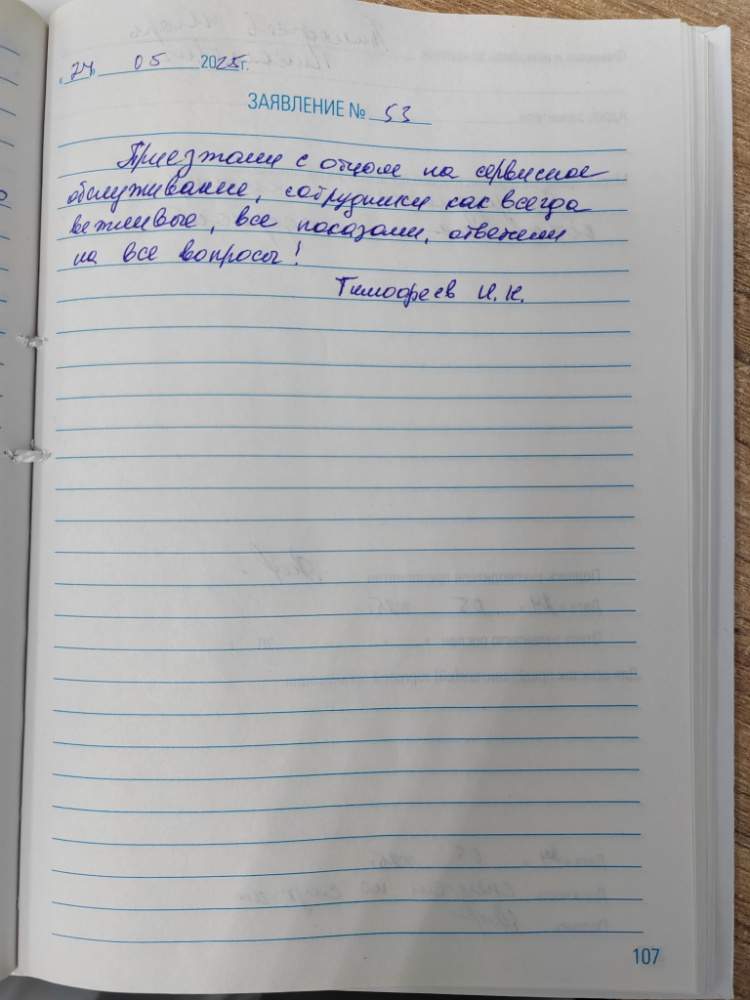 "24" 05 2025г.
ЗАЯВЛЕНИЕ № 53
Приезжали с отцом на сервисное
обслуживание, сотрудники как всегда
вежливые, все показали, ответили
на все вопросы!
Тимофеев И. К.
107